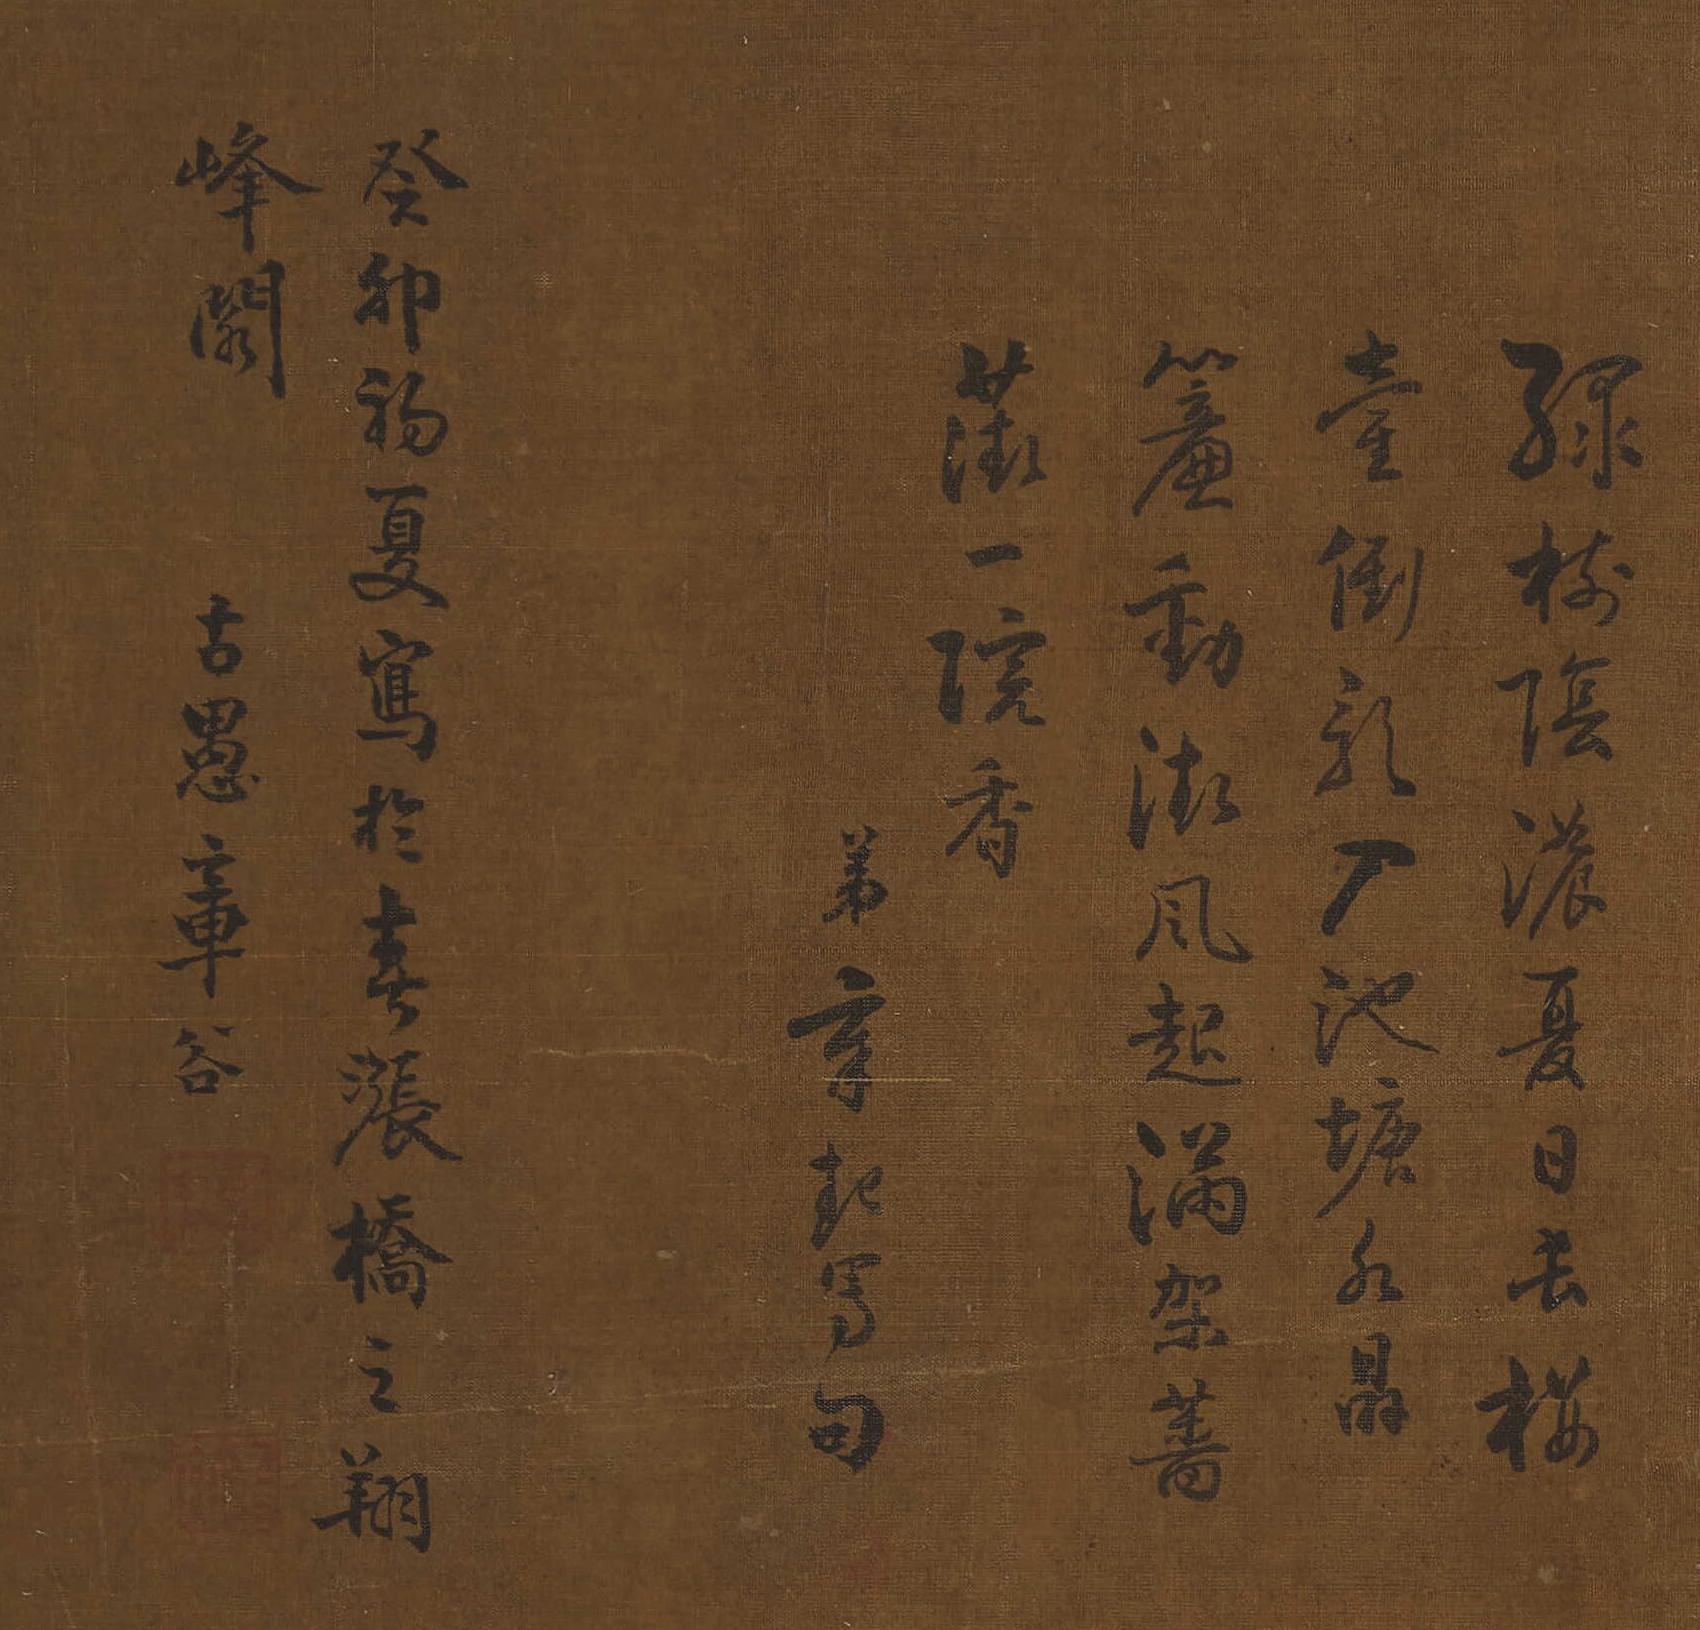 綠樹陰濃夏日長樓
臺倒影入池塘水晶
簾動微風起滿架薔
薇一院香
弟章起寫句
癸卯初夏寫於春漲橋之翔
峰閣
古愚章谷